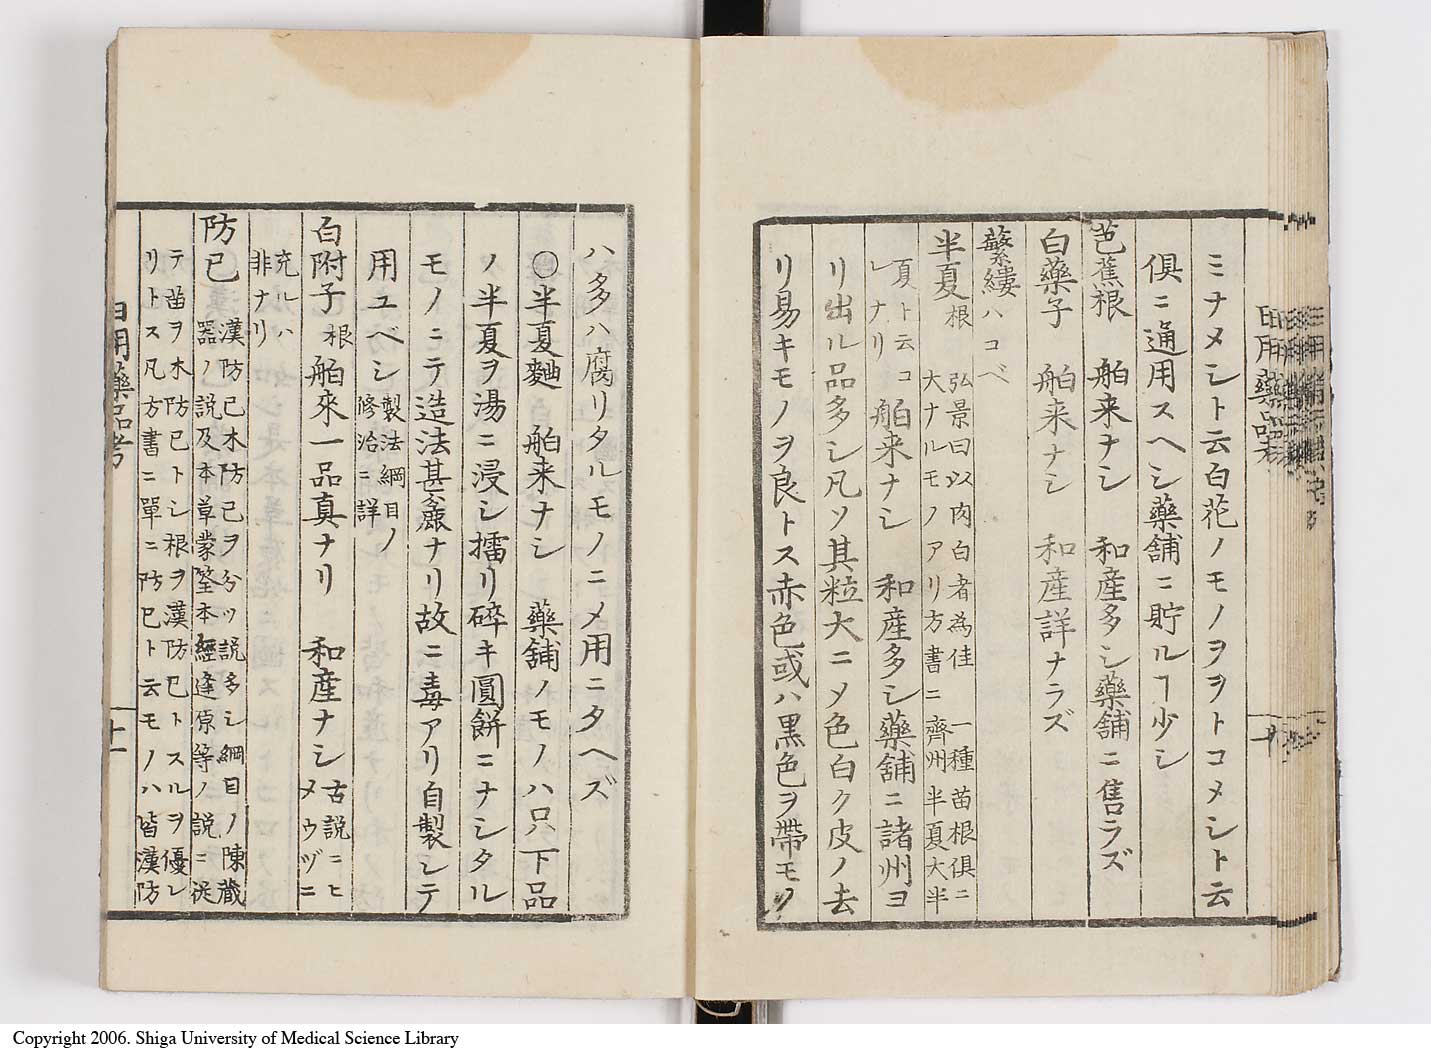 ミナメシト云白花ノモノヲヲトコメシト云
倶ニ通用スヘシ藥舗ニ貯ルヿ少シ
芭蕉根 舶来ナシ 和産多シ藥舗ニ售ラズ
白藥子 舶来ナシ 和産詳ナラズ
蘩縷ハコベ
半夏根 弘景曰以肉白者為佳 一種苗根倶ニ
大ナルモノアリ方書ニ齊州半夏大半
夏ト云コ
レナリ
舶来ナシ 和産多シ藥舗ニ諸州ヨ
リ出ル品多シ凡ソ其粒大ニメ色白ク皮ノ去
リ易キモノヲ良トス赤色或ハ黒色ヲ帶モノ
日用藥品考
ハ多ハ腐リタルモノニメ用ニタヘズ
○半夏麯 舶来ナシ 藥舗ノモノハ只下品
ノ半夏ヲ湯ニ浸シ擂リ碎キ圓餅ニナシタル
モノニテ造法甚麁ナリ故ニ毒アリ自製シテ
用ユベシ
製法綱目ノ
修治ニ詳
白附子根 舶來一品真ナリ 和産ナシ
古説ニヒ
メウヅニ
充ルハ
非ナリ
防已 漢防已木防已ヲ分ツ説多シ綱目ノ陳藏
器ノ説及本草蒙筌本經逢原等ノ説ニ從
テ苗ヲ木防已トシ根ヲ漢防已トスルヲ優レ
リトス凡方書ニ單ニ防已ト云モノハ皆漢防
日用藥品考
十一
Copyright 2006. Shiga University of Medical Science Library